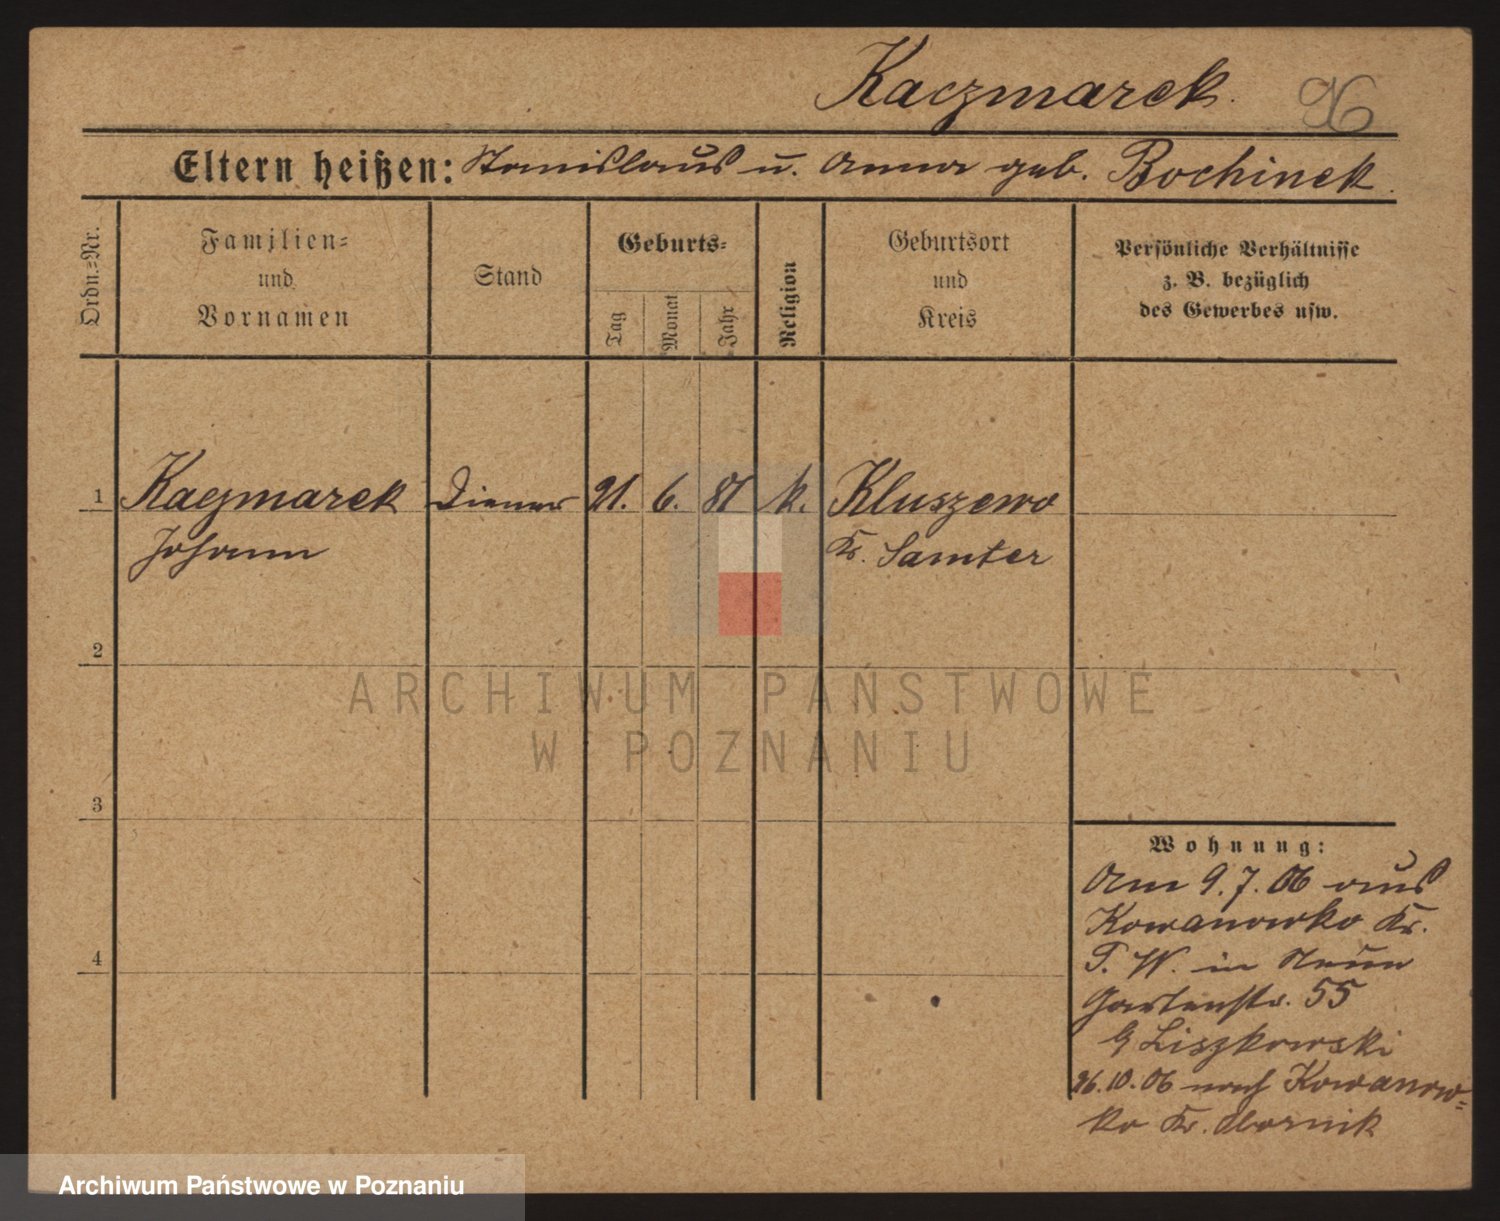 Kaczmarek. 96
Eltern heißen: Stanislaus u. Anna geb. Bochinek.
Ordn.-Nr.
Familien-
und
Vornamen
Stand
Geburts-
Tag
Monat
Jahr
Religion
Geburtsort
und
Kreis
Persönliche Verhältnisse
z. B. bezüglich
des Gewerbes usw.
1 Kaczmarek Diener 21. 6. 87 k. Kluszewo
Johann Kr. Samter
2
ARCHIWUM PAŃSTWOWE
W POZNANIU
3
Wohnung:
Am 9.7.06 aus
Kowanowko Kr.
4
P. W. in
Gartenstr. 55
Liszkowski
26.10.06 nach Kowanow-
ko Kr. Obornik
Archiwum Państwowe w Poznaniu